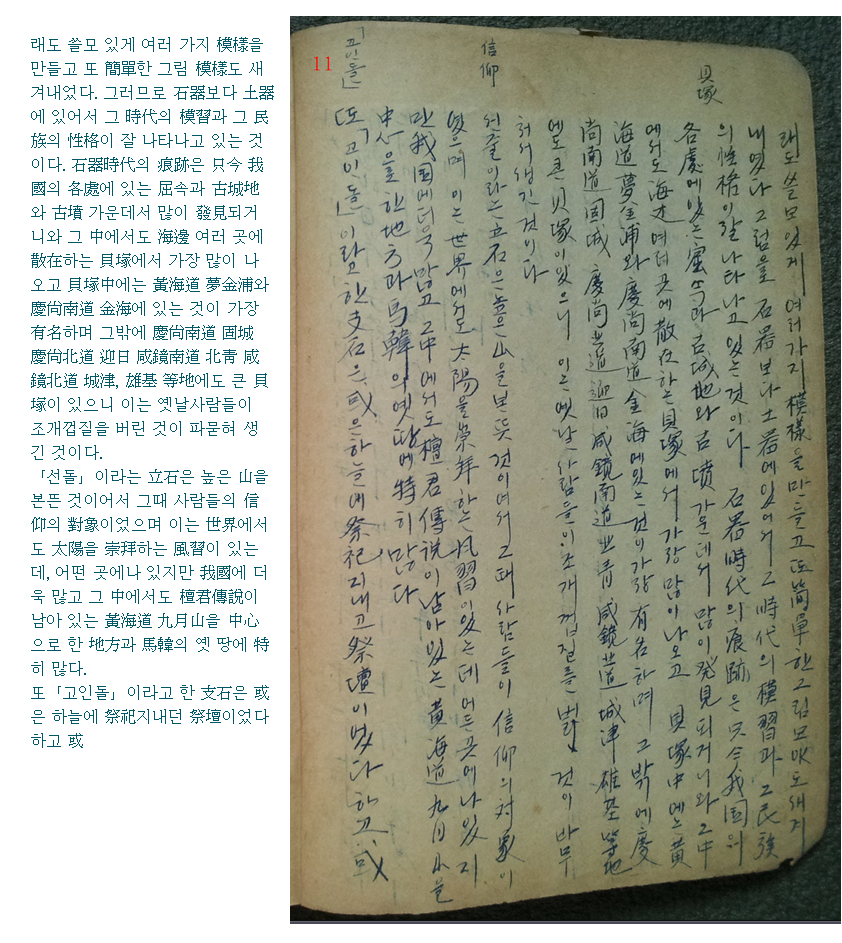 래도 쓸모 있게 여러 가지 模樣을
만들고 또 簡單한 그림 模樣도 새
겨내었다. 그러므로 石器보다 土器
에 있어서 그 時代의 模習과 그 民
族의 性格이 잘 나타나고 있는 것
이다. 石器時代의 痕跡은 只今 我
國의 各處에 있는 屈속과 古城地
와 古墳 가운데서 많이 發見되거
니와 그 中에서도 海邊 여러 곳에
散在하는 貝塚에서 가장 많이 나
오고 貝塚中에는 黃海道 夢金浦와
慶尙南道 金海에 있는 것이 가장
有名하며 그밖에 慶尙南道 固城
慶尙北道 迎日 咸鏡南道 北靑 咸
鏡北道 城津, 雄基 等地에도 큰 貝
塚이 있으니 이는 옛날사람들이
조개껍질을 버린 것이 파묻혀 생
긴 것이다.
「선돌」이라는 立石은 높은 山을
본뜬 것이어서 그때 사람들의 信
仰의 對象이었으며 이는 世界에서
도 太陽을 崇拜하는 風習이 있는
데, 어떤 곳에나 있지만 我國에 더
욱 많고 그 中에서도 檀君傳說이
남아 있는 黃海道 九月山을 中心
으로 한 地方과 馬韓의 옛 땅에 特
히 많다.
또「고인돌」이라고 한 支石은 或
은 하늘에 祭祀지내던 祭壇이었다
하고 或
11
貝塚
信仰
「고인돌」
래도쓸모있게 여러가지 模樣을만들고또簡單한그림모양도새겨
내였다 그럼을 石器보다土器에있어서 그時代의模習과그民族
의性格이잘나타나고있는것이다 石器時代의痕跡은只今我国의
各處에있는窟속과古城地와古墳가운데서 많이発見되거니와그中
에서도海边여러곳에散在하는貝塚에서 가장많이나오고 貝塚中에는黃
海道夢金浦와慶尚南道金海에있는것이가장有名하며 그밖에慶
尚南道固城、慶尚北道迎日咸鏡南道北青 咸鏡北道城津雄基等地
에도큰貝塚이있으니 이는옛날사람들이조개껍질를버린 것이파무
처서생긴것이다
선줄이라는立石은높은山을본뜻것이여서그때사람들이信仰의対象이
였으며 이는世界에서도太陽을崇拜하는風習이있는데어든곳에나있지
만我国에더욱많고그中에서도檀君傳說이남아있는黃海道九月山을
中心을한地方과馬韓의옛땅에特히많다
또「고인돌」이라고한支石은、或은하늘에祭祀지내고祭壇이였다하고、或